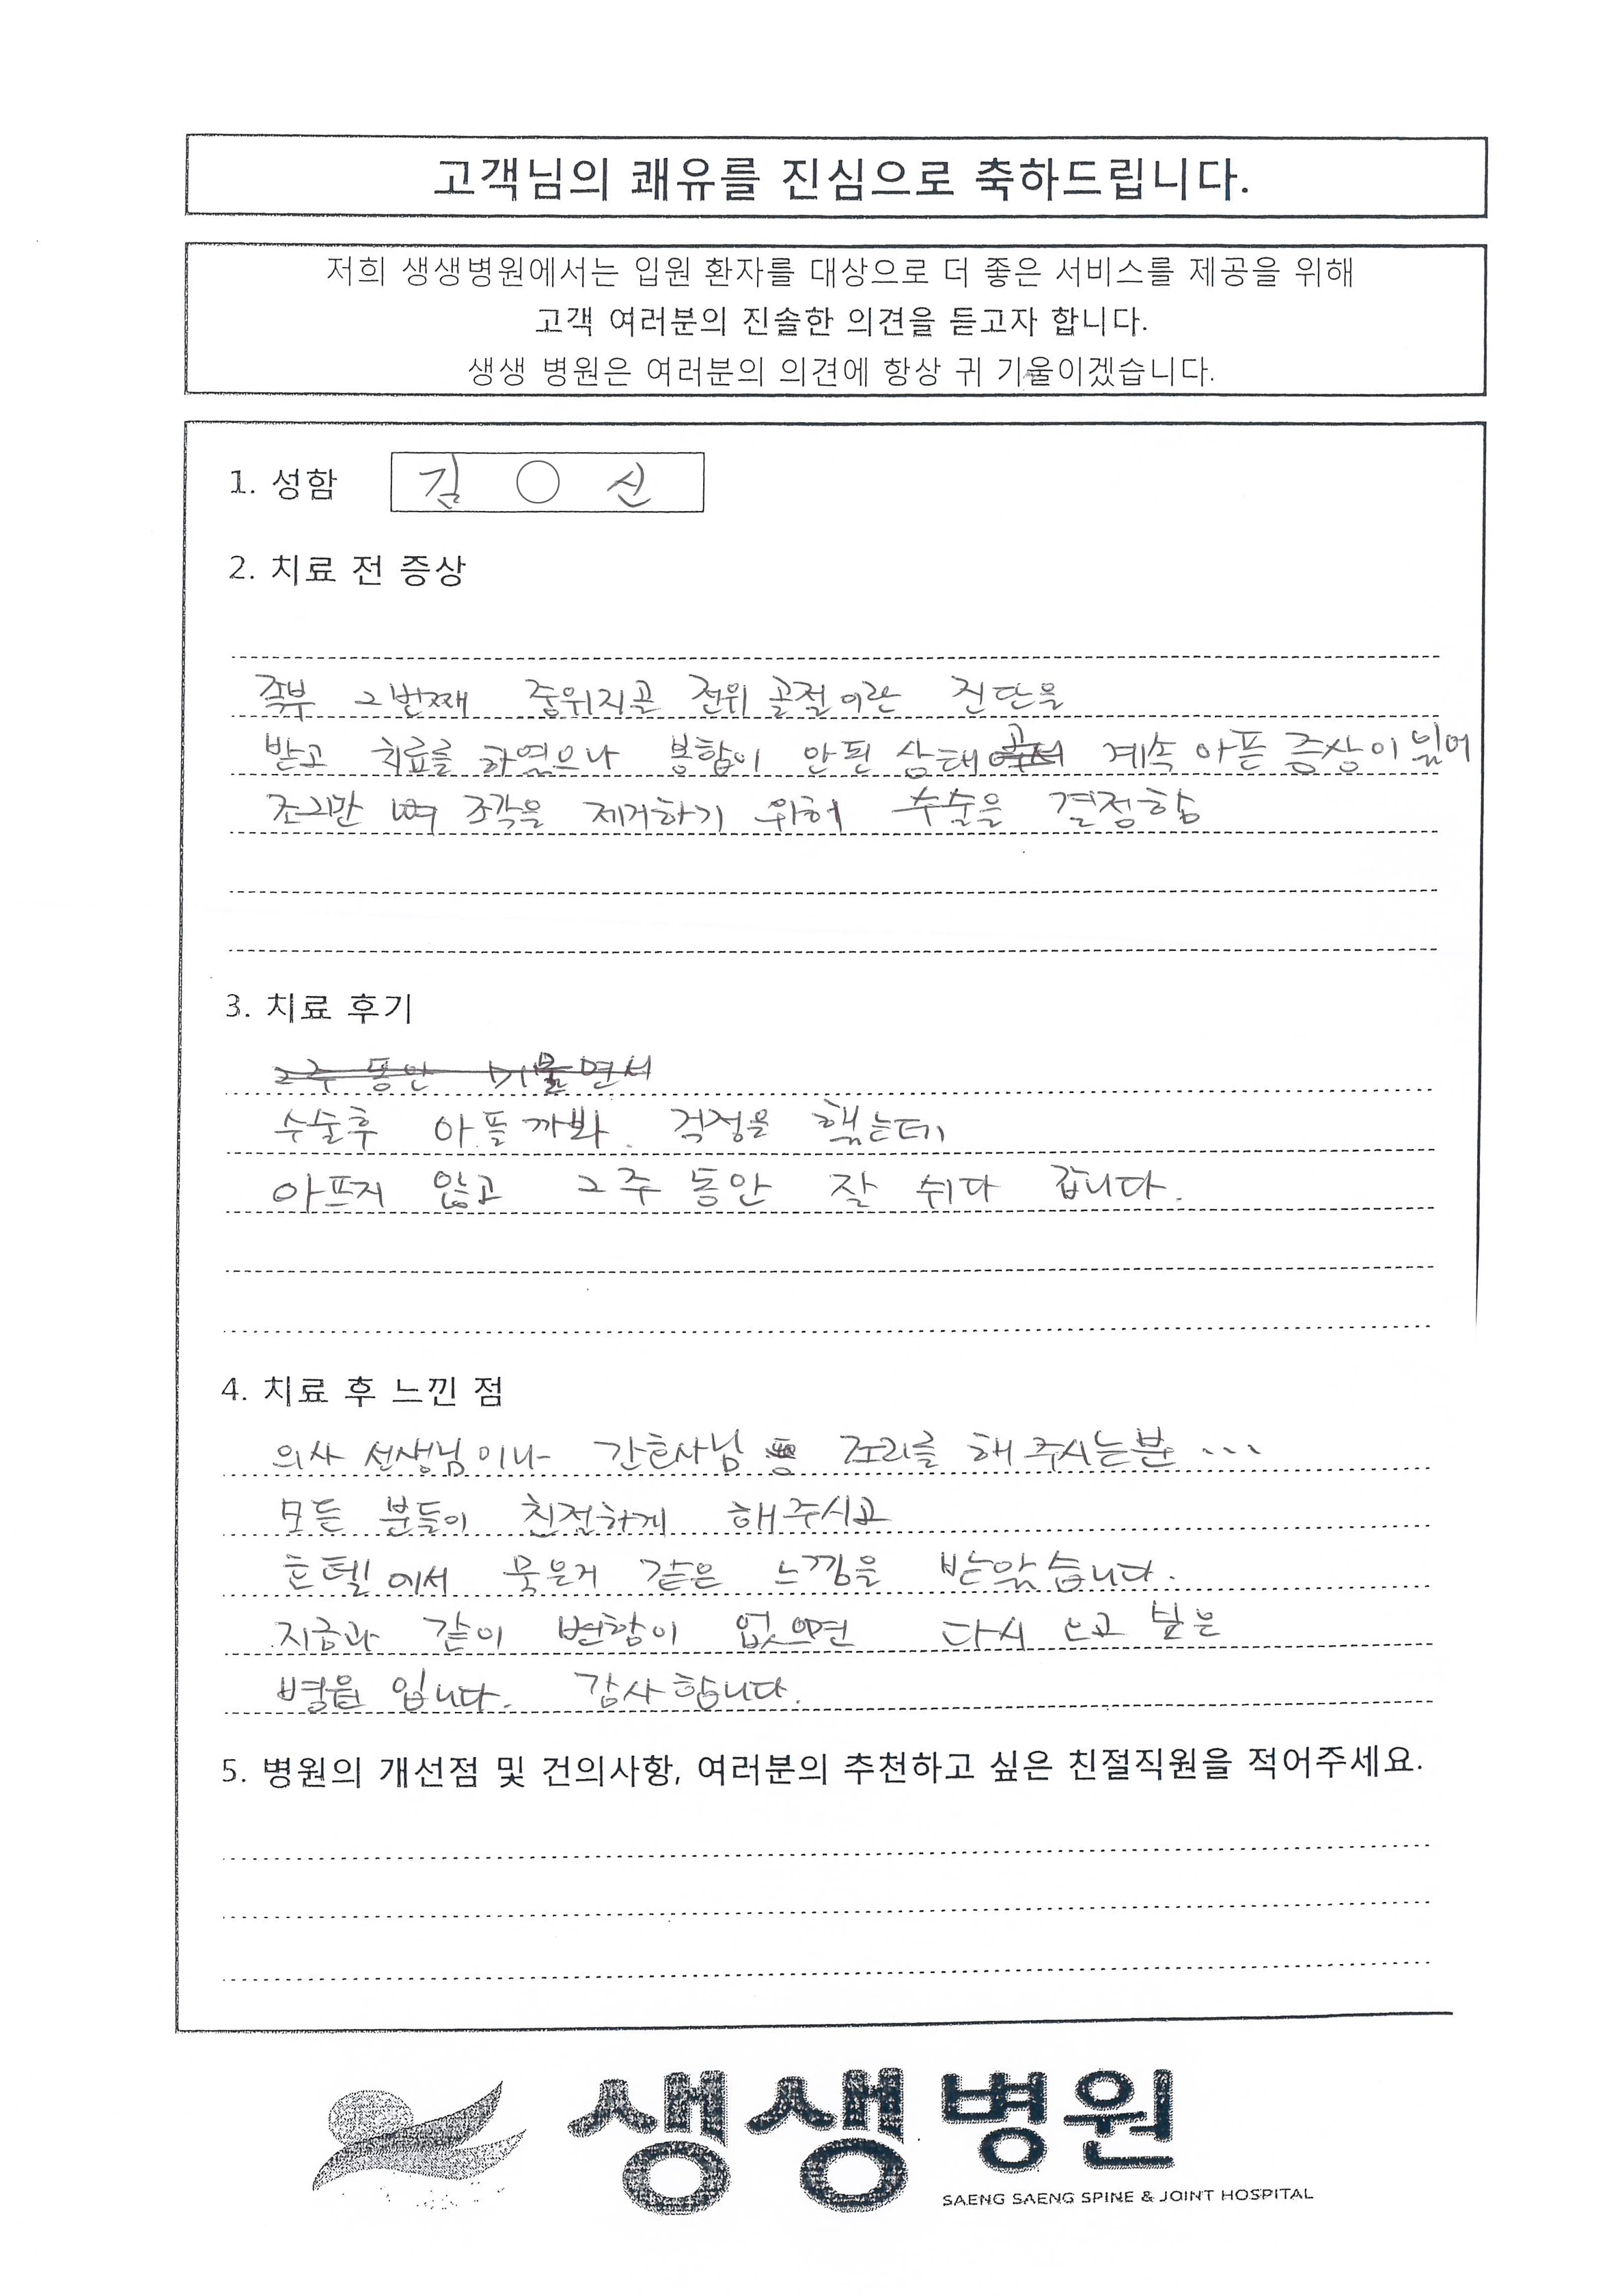 고객님의 쾌유를 진심으로 축하드립니다.
저희 생생병원에서는 입원 환자를 대상으로 더 좋은 서비스를 제공을 위해
고객 여러분의 진솔한 의견을 듣고자 합니다.
생생 병원은 여러분의 의견에 항상 귀 기울이겠습니다.
1. 성함 김 ○ 신
2. 치료 전 증상
족부 2번째 중위지골 전위 골절이란 진단을
받고 치료를 하였으나 봉합이 안된 상태 계속 아픈 증상이 있어
조그만 뼈 조각을 제거하기 위해 수술을 결정함
3. 치료 후기
2주 동안 머물면서
수술후 아플까봐 걱정을 했는데
아프지 않고 2주 동안 잘 쉬다 갑니다.
4. 치료 후 느낀 점
의사 선생님이나 간호사님 조리를 해 주시는분 ...
모든 분들이 친절하게 해주시고
호텔에서 묵은거 같은 느낌을 받았습니다.
지금과 같이 변함이 없으면 다시 오고 싶은
병원 입니다. 감사합니다.
5. 병원의 개선점 및 건의사항, 여러분의 추천하고 싶은 친절직원을 적어주세요.
생생병원
SAENG SAENG SPINE & JOINT HOSPITAL